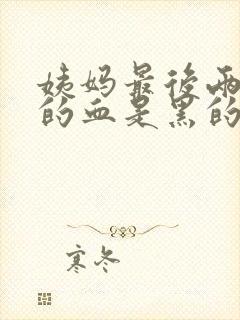 姨妈最后两
的血是黑的
寒冬